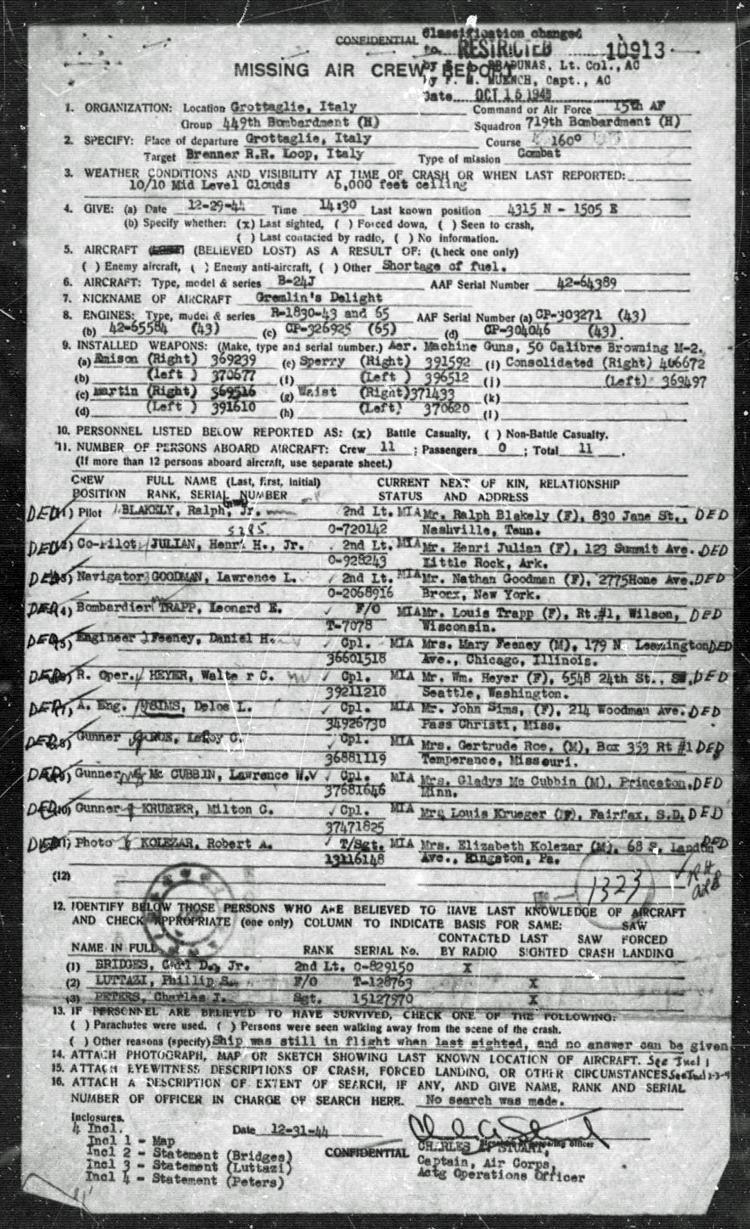 CONFIDENTIAL
Classification changed
to RESTRICTED 10913
by Lt. Col., AC
by F. M. MUENCH, Capt., AC
Date OCT 16 194
MISSING AIR CREW REPORT
1. ORGANIZATION: Location Grottaglie, Italy Command or Air Force 15th AF
Group 449th Bombardment (H) Squadron 719th Bombardment (H)
2. SPECIFY: Place of departure Grottaglie, Italy Course 160°
Target Brenner R.R. Loop, Italy Type of mission Combat
3. WEATHER CONDITIONS AND VISIBILITY AT TIME OF CRASH OR WHEN LAST REPORTED:
10/10 Mid Level Clouds 6,000 feet ceiling
4. GIVE: (a) Date 12-29-44 Time 14:30 Last known position 4315 N - 1505 E
(b) Specify whether: (x) Last sighted, ( ) Forced down, ( ) Seen to crash,
( ) Last contacted by radio, ( ) No information.
5. AIRCRAFT (BELIEVED LOST) AS A RESULT OF: (Check one only)
( ) Enemy aircraft, ( ) Enemy anti-aircraft, ( ) Other Shortage of fuel.
6. AIRCRAFT: Type, model & series B-24J AAF Serial Number 42-64389
7. NICKNAME OF AIRCRAFT Gremlin's Delight
8. ENGINES: Type, model & series R-1830-43 and 65 AAF Serial Number (a) CP-303271 (43)
(b) 42-65584 (43) (c) CP-326925 (65) (d) CP-304046 (43)
9. INSTALLED WEAPONS: (Make, type and serial number.) Aer. Machine Guns, 50 Calibre Browning M-2.
(a) Emison (Right) 369239 (e) Sperry (Right) 391592 (i) Consolidated (Right) 406672
(b) (left ) 370677 (f) (Left ) 396512 (j) (Left) 369497
(c) Martin (Right) 569516 (g) Waist (Right) 371433 (k)
(d) (Left ) 391610 (h) (Left) 370620 (l)
10. PERSONNEL LISTED BELOW REPORTED AS: (x) Battle Casualty, ( ) Non-Battle Casualty.
11. NUMBER OF PERSONS ABOARD AIRCRAFT: Crew 11 ; Passengers 0 ; Total 11
(If more than 12 persons aboard aircraft, use separate sheet.)
CREW FULL NAME (Last, first, initial) CURRENT NEXT OF KIN, RELATIONSHIP
POSITION RANK, SERIAL NUMBER STATUS AND ADDRESS
DED (1) Pilot BLAKELY, Ralph, Jr. 2nd Lt. MIA Mr. Ralph Blakely (F), 830 Jane St., DED
5285 O-720142 Nashville, Tenn.
DED (2) Co-Pilot JULIAN, Henri H., Jr. 2nd Lt. MIA Mr. Henri Julian (F), 123 Summit Ave. DED
O-928243 Little Rock, Ark.
DED (3) Navigator GOODMAN, Lawrence L. 2nd Lt. MIA Mr. Nathan Goodman (F), 2775 Hone Ave. DED
O-2068916 Bronx, New York.
DED (4) Bombardier TRAPP, Leonard E. F/O MIA Mr. Louis Trapp (F), Rt.#1, Wilson, DED
T-7078 Wisconsin.
DED (5) Engineer Feeney, Daniel H. Cpl. MIA Mrs. Mary Feeney (M), 179 N Leamington DED
36601518 Ave., Chicago, Illinois.
DED (6) R. Oper. HEYER, Walte r C. Cpl. MIA Mr. Wm. Heyer (F), 6548 24th St., SW, DED
39211210 Seattle, Washington.
DED (7) A. Eng. SIMS, Delos L. Cpl. MIA Mr. John Sims, (F), 214 Woodman Ave. DED
34926730 Pass Christi, Miss.
DED (8) Gunner LeRoy C. Cpl. MIA Mrs. Gertrude Roe, (M), Box 353 Rt #1 DED
36881119 Temperance, Missouri.
DED (9) Gunner Mc CUBBIN, Lawrence W.V Cpl. MIA Mrs. Gladys Mc Cubbin (M), Princeton, DED
37681646 Minn.
DED (10) Gunner KRUEGER, Milton C. Cpl. MIA Mr. Louis Krueger (F), Fairfax, S.D. DED
37471825
DED (11) Photo KOLEZAR, Robert A. T/Sgt. MIA Mrs. Elizabeth Kolezar (M), 68 F, Landon DED
13116148 Ave., Kingston, Pa.
(12) 1323
12. IDENTIFY BELOW THOSE PERSONS WHO ARE BELIEVED TO HAVE LAST KNOWLEDGE OF AIRCRAFT
AND CHECK APPROPRIATE (one only) COLUMN TO INDICATE BASIS FOR SAME: SAW
CONTACTED LAST SAW FORCED
NAME IN FULL RANK SERIAL No. BY RADIO SIGHTED CRASH LANDING
(1) BRIDGES, Carl D., Jr. 2nd Lt. O-829150 X
(2) LUTTAZI, Phillip S. F/O T-128763 X
(3) PETERS, Charles I. Sgt. 15127970 X
13. IF PERSONNEL ARE BELIEVED TO HAVE SURVIVED, CHECK ONE OF THE FOLLOWING:
( ) Parachutes were used. ( ) Persons were seen walking away from the scene of the crash.
( ) Other reasons (specify) Ship was still in flight when last sighted, and no answer can be given
14. ATTACH PHOTOGRAPH, MAP OR SKETCH SHOWING LAST KNOWN LOCATION OF AIRCRAFT. See Incl 1
15. ATTACH EYEWITNESS DESCRIPTIONS OF CRASH, FORCED LANDING, OR OTHER CIRCUMSTANCES See Incl 2-3-4
16. ATTACH A DESCRIPTION OF EXTENT OF SEARCH, IF ANY, AND GIVE NAME, RANK AND SERIAL
NUMBER OF OFFICER IN CHARGE OF SEARCH HERE. No search was made.
Inclosures.
4 Incl. Date 12-31-44
Incl 1 - Map
Incl 2 - Statement (Bridges) CONFIDENTIAL CHARLES A. STUART,
Incl 3 - Statement (Luttazi) Captain, Air Corps,
Incl 4 - Statement (Peters) Actg Operations Officer